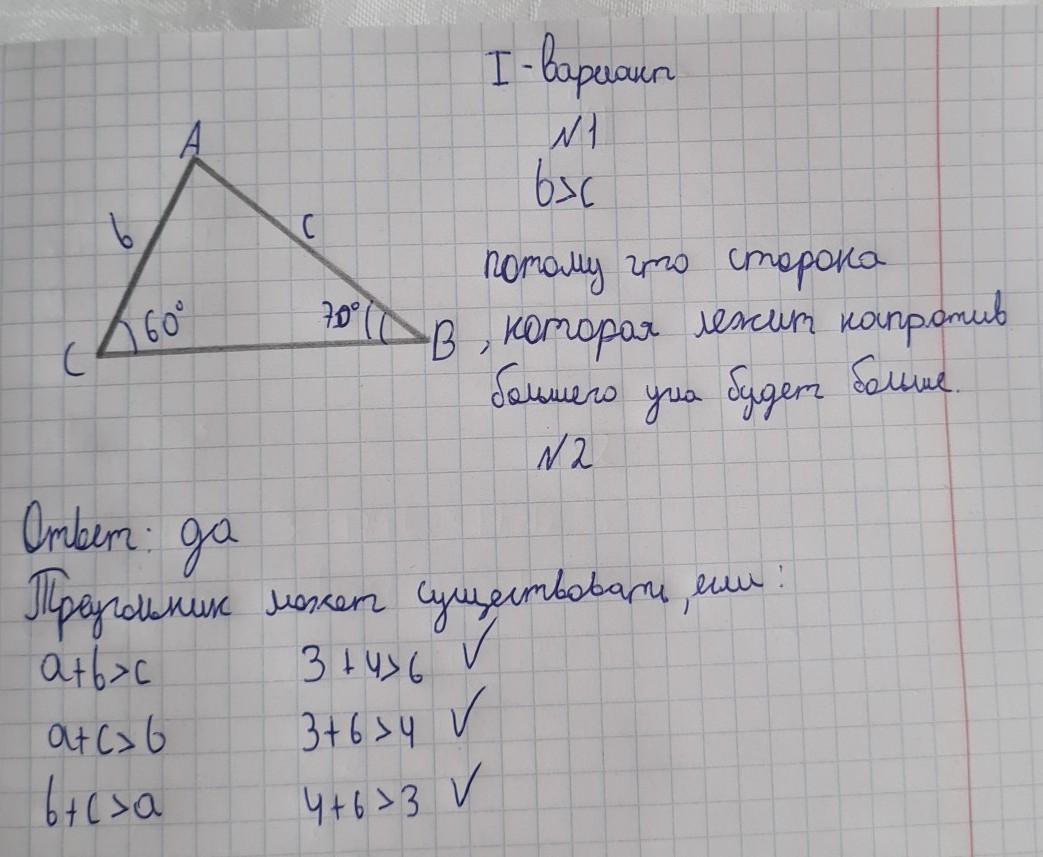 I-вариант
N1
b>c
A
b
c
60°
70°
C
B
потому что сторона
, которая лежит напротив
большего угла будет больше.
N2
Ответ: да
Треугольник может существовать, если:
a+b>c 3+4>6 ✓
a+c>b 3+6>4 ✓
b+c>a 4+6>3 ✓